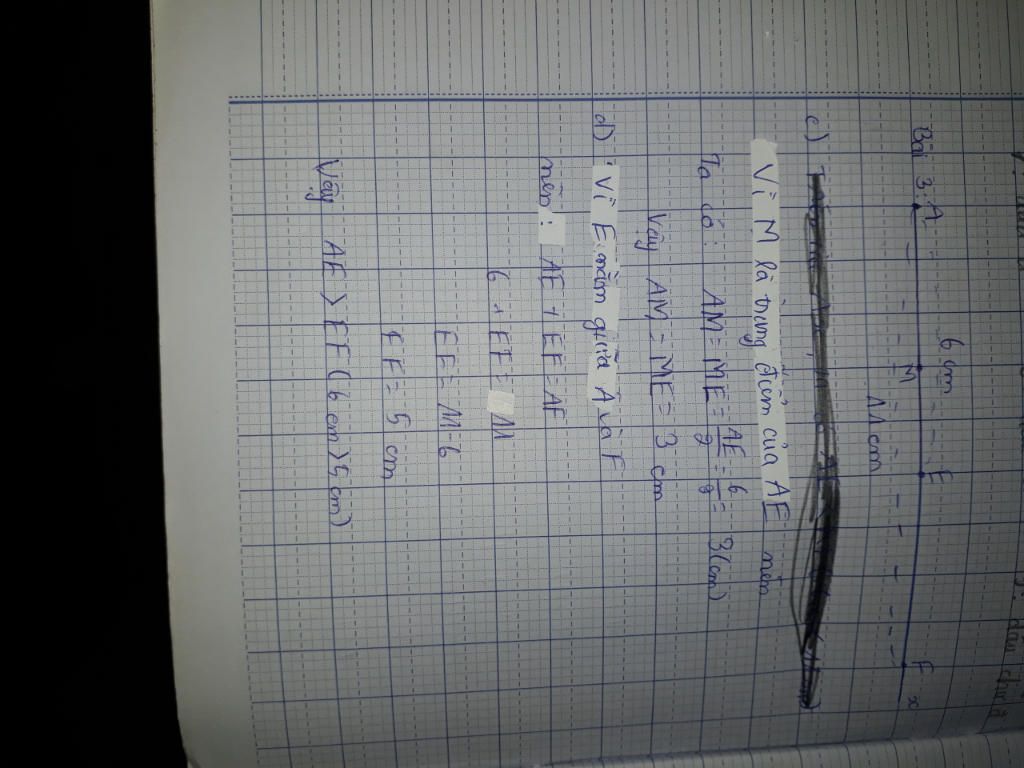 Bài 3. A 6 cm M E F x
11 cm
c)
Vì M là trung điểm của AE nên
Ta có: AM = ME = AE/2 = 6/2 = 3 (cm)
Vậy AM = ME = 3 cm
d) Vì E nằm giữa A và F
nên: AE + EF = AF
6 + EF = 11
EF = 11 - 6
EF = 5 cm
Vậy AE > EF (6 cm > 5 cm)